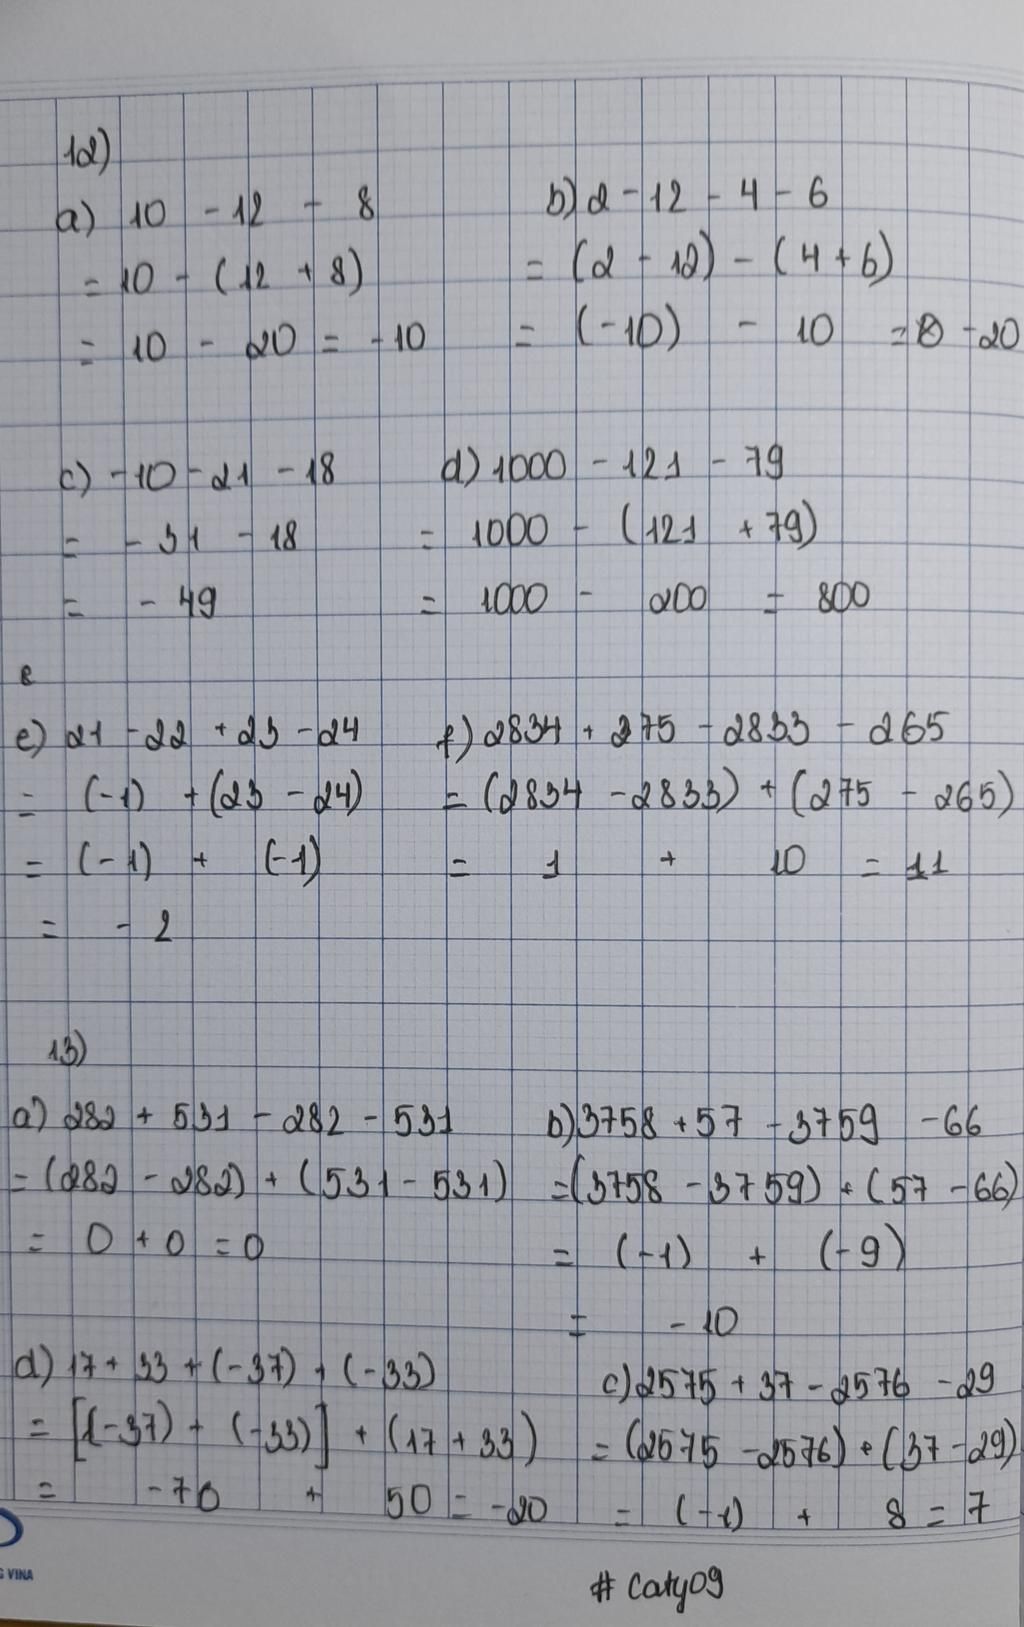 12)
a) 10 - 12 - 8
= 10 - (12 + 8)
= 10 - 20 = -10
b) 2 - 12 - 4 - 6
= (2 - 12) - (4 + 6)
= (-10) - 10 = -20
c) -10 - 21 - 18
= -31 - 18
= -49
d) 1000 - 121 - 79
= 1000 - (121 + 79)
= 1000 - 200 = 800
e) 21 - 22 + 23 - 24
= (-1) + (23 - 24)
= (-1) + (-1)
= -2
f) 2834 + 275 - 2833 - 265
= (2834 - 2833) + (275 - 265)
= 1 + 10 = 11
13)
a) 282 + 531 - 282 - 531
= (282 - 282) + (531 - 531)
= 0 + 0 = 0
b) 3758 + 57 - 3759 - 66
= (3758 - 3759) + (57 - 66)
= (-1) + (-9)
= -10
d) 17 + 33 + (-37) + (-33)
= [(-37) + (-33)] + (17 + 33)
= -70 + 50 = -20
c) 2575 + 37 - 2576 - 29
= (2575 - 2576) + (37 - 29)
= (-1) + 8 = 7
VINA
# Caty09